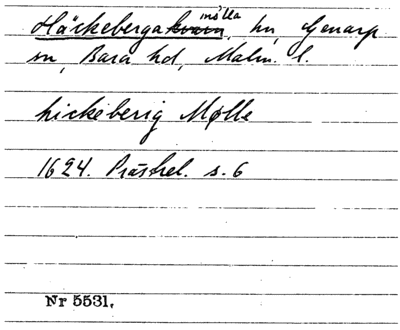 Häckeberga mölla, hn, Genarp
sn, Bara hd, Malm. l.
hickeberig Mølle
1624. Prästrel. s. 6
Nr 5531.